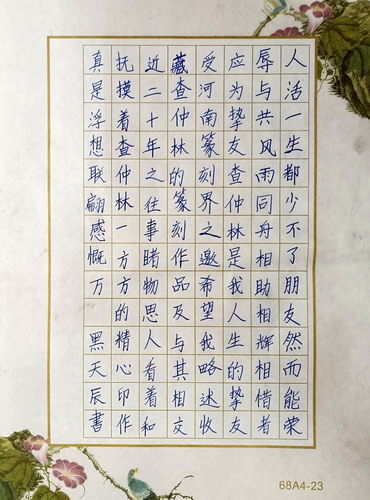 人活一生都少不了朋友然而能荣
辱与共风雨同舟相助相辉相惜者
应为挚友查仲林是我人生的挚友
受河南篆刻界之邀希望我略述收
藏查仲林的篆刻作品及与其相交
近二十年之往事睹物思人看着和
抚摸着查仲林一方方的精心印作
真是浮想联翩感慨万 黑天辰書
68A4-23